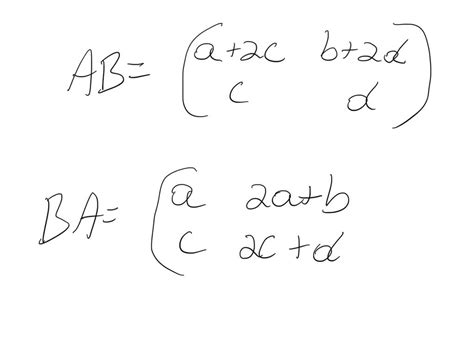 AB= (a+2c b+2d
c d)
BA= (a 2a+b
c 2c+d